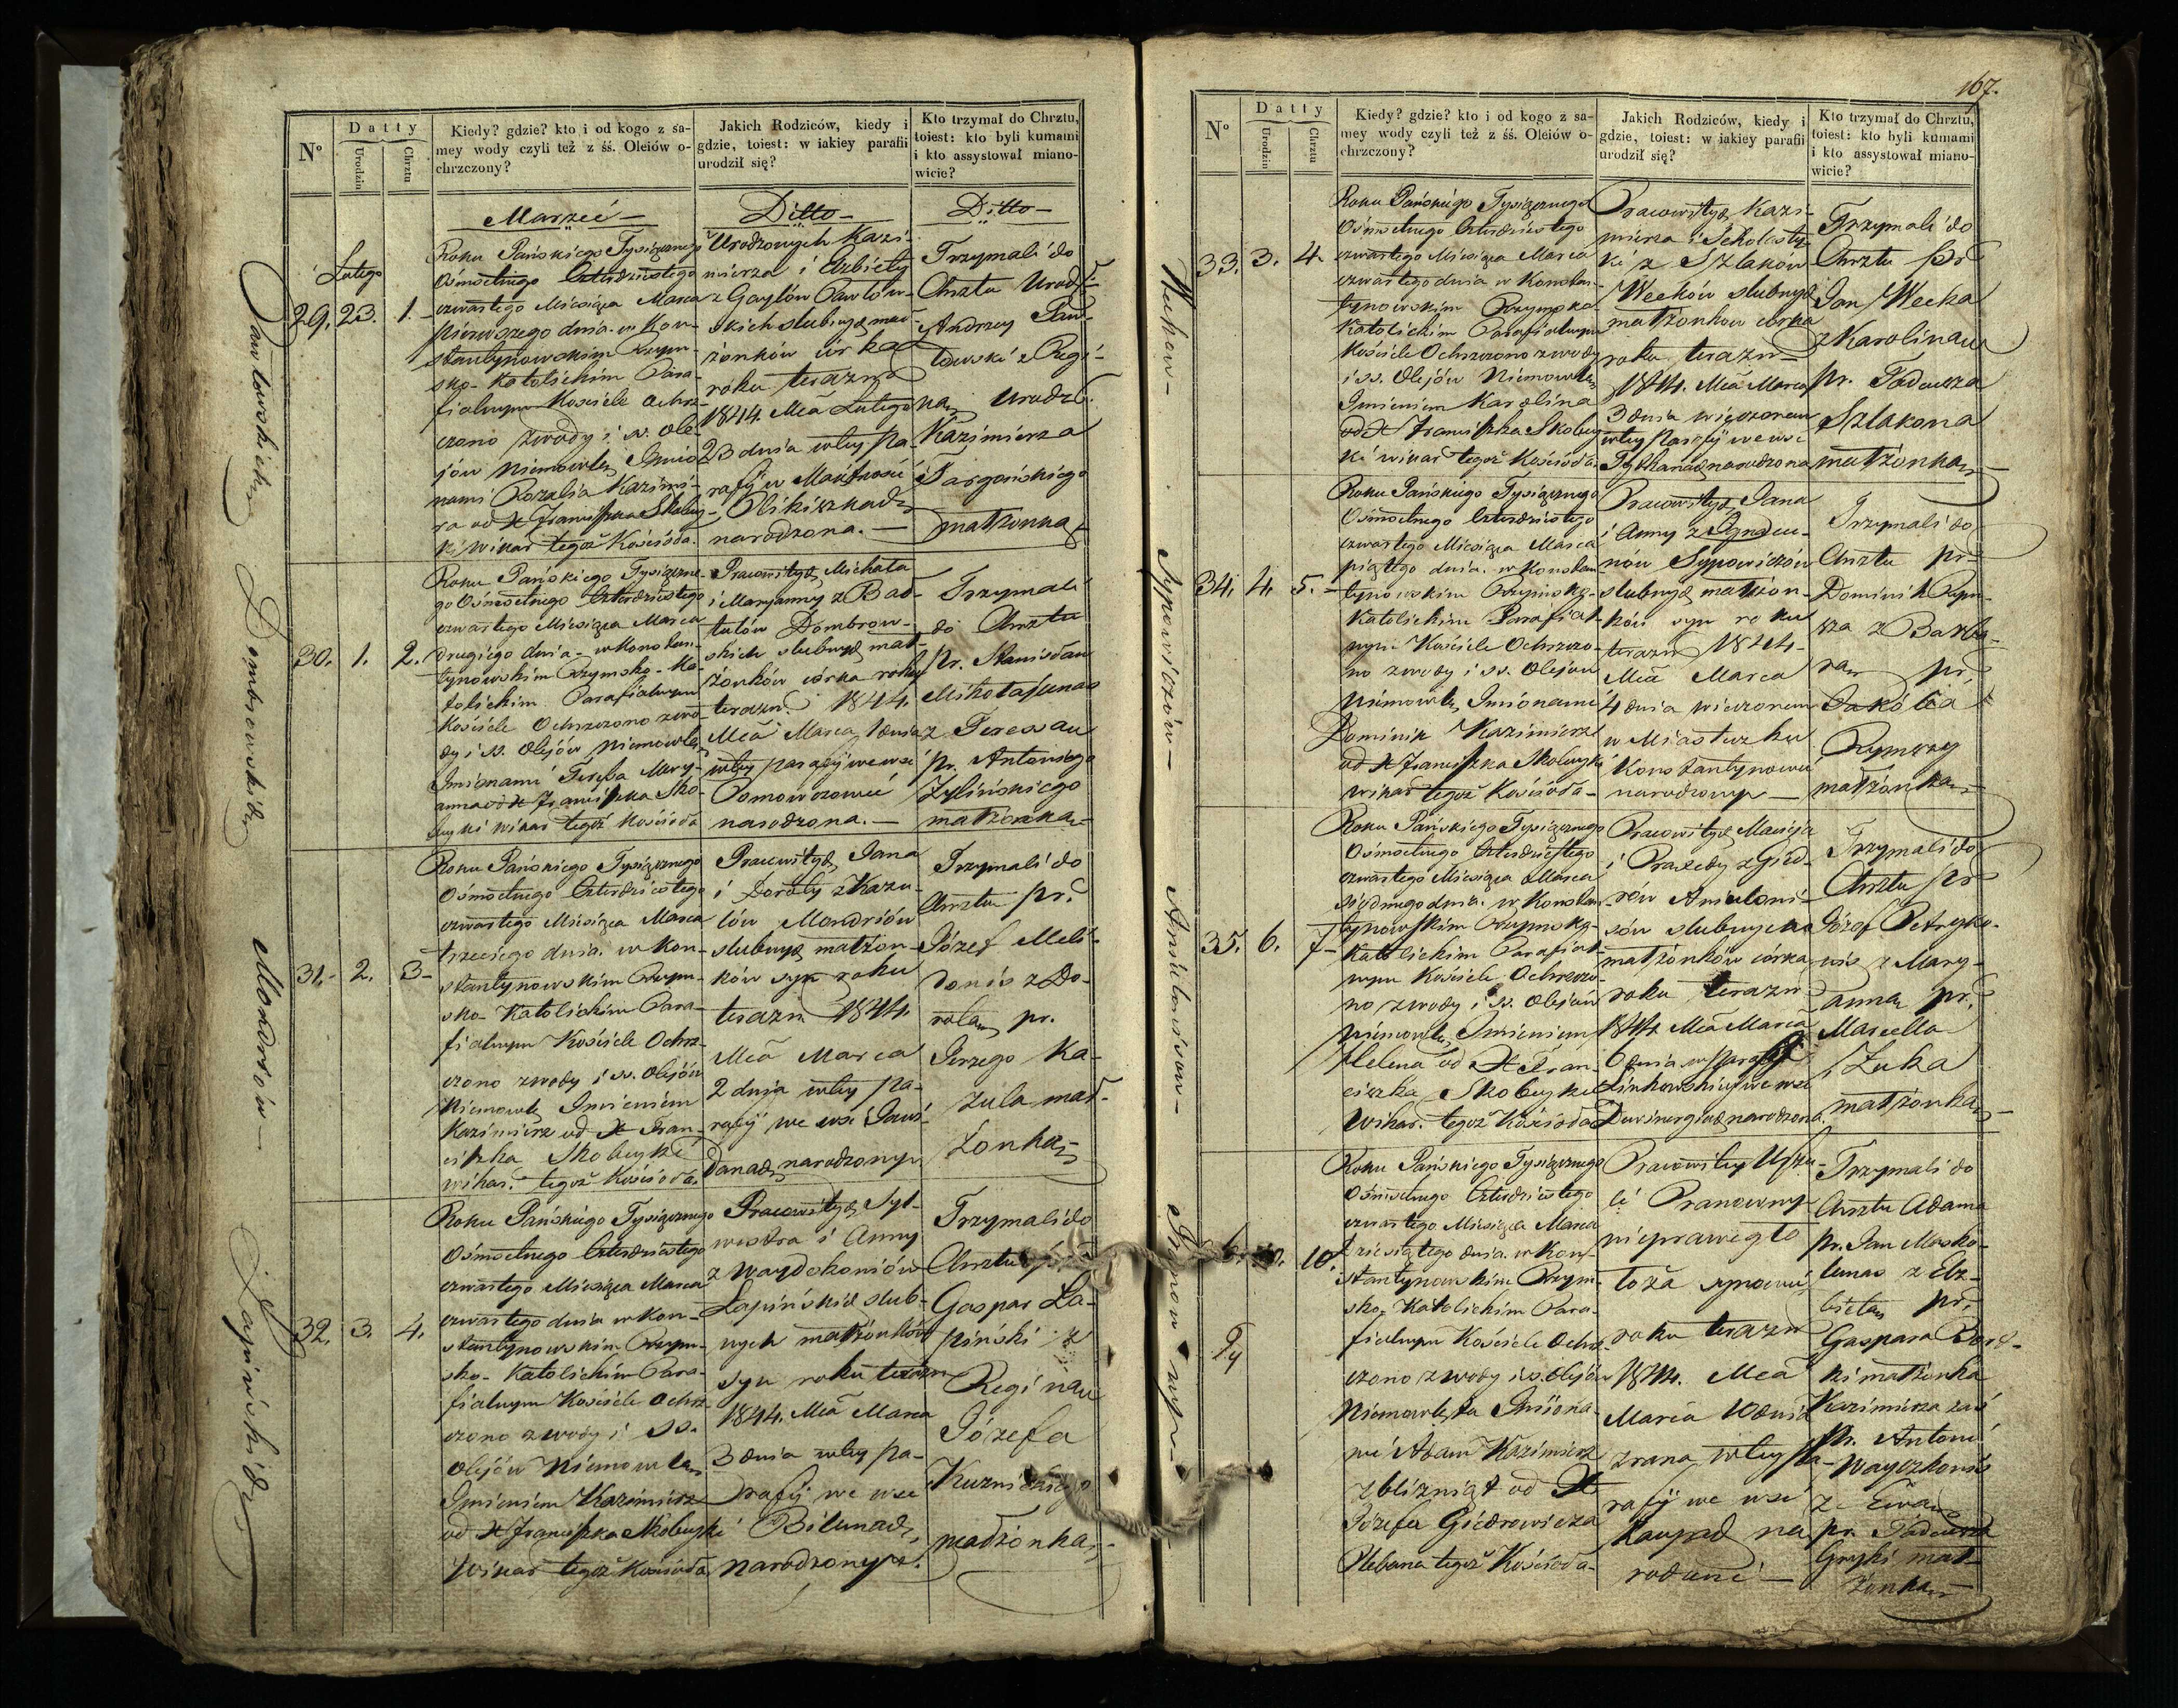 Nº
Datty
Urodzin
Chrztu
Kiedy? gdzie? kto i od kogo z sa-
mey wody czyli też z śś. Oleiów o-
chrzczony?
Jakich Rodziców, kiedy i
gdzie, toiest: w iakiey parafii
urodził się?
Kto trzymał do Chrztu,
toiest: kto byli kumami
i kto assystował miano-
wicie?
Marzec
Ditto
Ditto
Lutego
29. 23. 1.
Roku Pańskiego Tysiącznego
Ośmsetnego Czterdziestego
czwartego Miesiąca Marca
pierwszego dnia w Kon-
stantynowskim Rzym-
sko-Katolickim Para-
fialnym Kościele Ochrz-
czono z wody i ss. Ole-
jów Niemowle Imio-
nami Rozalia Kazimi-
ra od X Franciszka Skobey-
ki wikar tegoż Kościoła.
Urodzonych Kazi-
mierza i Elżbiety
z Gaylów Pawłow-
skich slubnych mał-
żonków córka
roku terazn
1844. Mca Lutego
23 dnia wtey pa-
rafij w Maiętności
Olikiszkach
narodzona.
Trzymali do
Chrztu Urodz.
Andrzey Paw-
łowski z Regi-
ną Urodz.
Kazimierza
Targońskiego
małżonką
Pawłowskich
30. 1. 2.
Roku Pańskiego Tysiączne-
go Ośmsetnego Czterdziestego
czwartego Miesiąca Marca
drugiego dnia w Konstan-
tynowskim Rzymsko-Ka-
tolickim Parafialnym
Kościele Ochrzczono z wo-
dy i ss. Olejów Niemowle
Imionami Teressa Mary-
anna od X Franciszka Sko-
beyki wikar tegoż Kościoła
Pracowitych Michała
i Maryanny z Bad-
tułów Dombrow-
skich slubnych mał-
żonków córka roku
terazn. 1844.
Mca Marca 1 dnia
wtey parafij we wsi
Pomowczowci
narodzona.
Trzymali
do Chrztu
Pr. Stanisław
Mikołajunas
z Teressą
pr. Antoniego
Żylińskiego
małżonką
Dombrowskich
31. 2. 3
Roku Pańskiego Tysiącznego
Ośmsetnego Czterdziestego
czwartego Miesiąca Marca
trzeciego dnia w Kon-
stantynowskim Rzym-
sko-Katolickim Para-
fialnym Kościele Ochrz-
czono z wody i ss. Olejów
Niemowle Imieniem
Kazimierz od X Fran-
ciszka Skobeyki
wikar. tegoż Kościoła.
Pracowitych Jana
i Doroty z Kazu-
lów Mondriów
slubnych małżon-
ków syn roku
terazn 1844.
Mca Marca
2 dnia wtey pa-
rafij we wsi Jawi-
danach narodzonym
Trzymali do
Chrztu pr.
Józef Meli-
donis z Do-
rotą pr.
Jerzego Ka-
zula mał-
żonką
Mondriów
32. 3. 4.
Roku Pańskiego Tysiącznego
Ośmsetnego Czterdziestego
czwartego Miesiąca Marca
czwartego dnia w Kon-
stantynowskim Rzym-
sko-Katolickim Para-
fialnym Kościele Ochrz-
czono z wody i ss.
Olejów Niemowle
Imieniem Kazimierz
od X Franciszka Skobeyki
wikar tegoż Kościoła
Pracowitych Syl-
westra i Anny
z Waydokoniów
Łapińskich slub-
nych małżonków
syn roku terazn
1844. Mca Marca
3 dnia wtey pa-
rafij we wsi
Bilunach
narodzonym.
Trzymali do
Chrztu
Gaspar Ła-
piński z
Reginą
Józefa
Kuznickiego
małżonką
Łapińskich
167.
Nº
Datty
Urodzin
Chrztu
Kiedy? gdzie? kto i od kogo z sa-
mey wody czyli też z śś. Oleiów o-
chrzczony?
Jakich Rodziców, kiedy i
gdzie, toiest: w iakiey parafii
urodził się?
Kto trzymał do Chrztu,
toiest: kto byli kumami
i kto assystował miano-
wicie?
33. 3. 4.
Roku Pańskiego Tysiącznego
Ośmsetnego Czterdziestego
czwartego Miesiąca Marca
czwartego dnia w Konstan-
tynowskim Rzymsko-
Katolickim Parafialnym
Kościele Ochrzczono z wody
i ss. Olejów Niemowle
Imieniem Karolina
od X Franciszka Skobey-
ki wikar tegoż Kościoła.
Pracowitych Kazi-
mierza i Scholasty-
ki z Szlaków
Weckow slubnych
małżonkow córka
roku terazn
1844. Mca Marca
3 dnia więczorem
wtey Parafij we wsi
narodzona
Trzymali do
Chrztu pr
Jan Wecka
z Karoliną
pr. Tadeusza
Szlakona
małżonką
Weckow
34. 4. 5.
Roku Pańskiego Tysiącznego
Ośmsetnego Czterdziestego
czwartego Miesiąca Marca
piątego dnia w Konstan-
tynowskim Rzymsko-
Katolickim Parafial-
nym Kościele Ochrzczo-
no z wody i ss. Olejow
Niemowle Imionami
Dominik Kazimierz
od X Franciszka Skobeyki
wikar tegoż Kościoła
Pracowitych Jana
i Anny z
nów Sypowiczów
slubnych małżon-
ków syn roku
terazn 1844
Mca Marca
4 dnia wieczorem
w Miasteczku
Konstantynowie
narodzonym
Trzymali do
Chrztu pr
Dominik Rym-
sza z Barba-
rą pr.
Jakóba
Rymszy
małżonką
Sypowiczów
35. 6. 7
Roku Pańskiego Tysiącznego
Ośmsetnego Czterdziestego
czwartego Miesiąca Marca
siodmego dnia w Konstan-
tynowskim Rzymsko-
Katolickim Parafial-
nym Kościele Ochrzczo-
no z wody i ss. Olejów
Niemowle Imieniem
Helena od X Fran-
ciszka Skobeyki
Wikar. tegoż Kościoła
Pracowitych Macieja
i Praxedy z Gied-
rów Aniuloni-
sów slubnych
małżonków córka
roku terazn
1844 Mca Marca
6 dnia w Parafij
we wsi
narodzona.
Trzymali do
Chrztu pr
Józef Petryko-
wis z Mary-
anną pr.
Marcella
Żuka
małżonką
Aniulonisow
10.
Roku Pańskiego Tysiącznego
Ośmsetnego Czterdziestego
czwartego Miesiąca Marca
dziesiątego dnia w Kon-
stantynowskim Rzym-
sko-Katolickim Para-
fialnym Kościele Ochrz-
czono z wody i ss. Olejów
Niemowlęta Imiona-
mi Adam Kazimierz
z bliźniąt od X
Józefa Giedrowicza
Plebana tegoż Kościoła
Pracowitey Urszu-
li Pranowny
nieprawego
łoża synowie
roku terazn
1844. Mca
Marca 10 dnia
zrana wtey Pa-
rafij we wsi
na-
rodzeni
Trzymali do
Chrztu Adama
pr. Jan Mosko-
lunas z Elż-
bietą pr.
Gaspara
małżonką
Kazimierza zaś
pr. Antoni
Wayczkonis
z Ewą
pr. Tadeusza
Gryki mał-
żonką